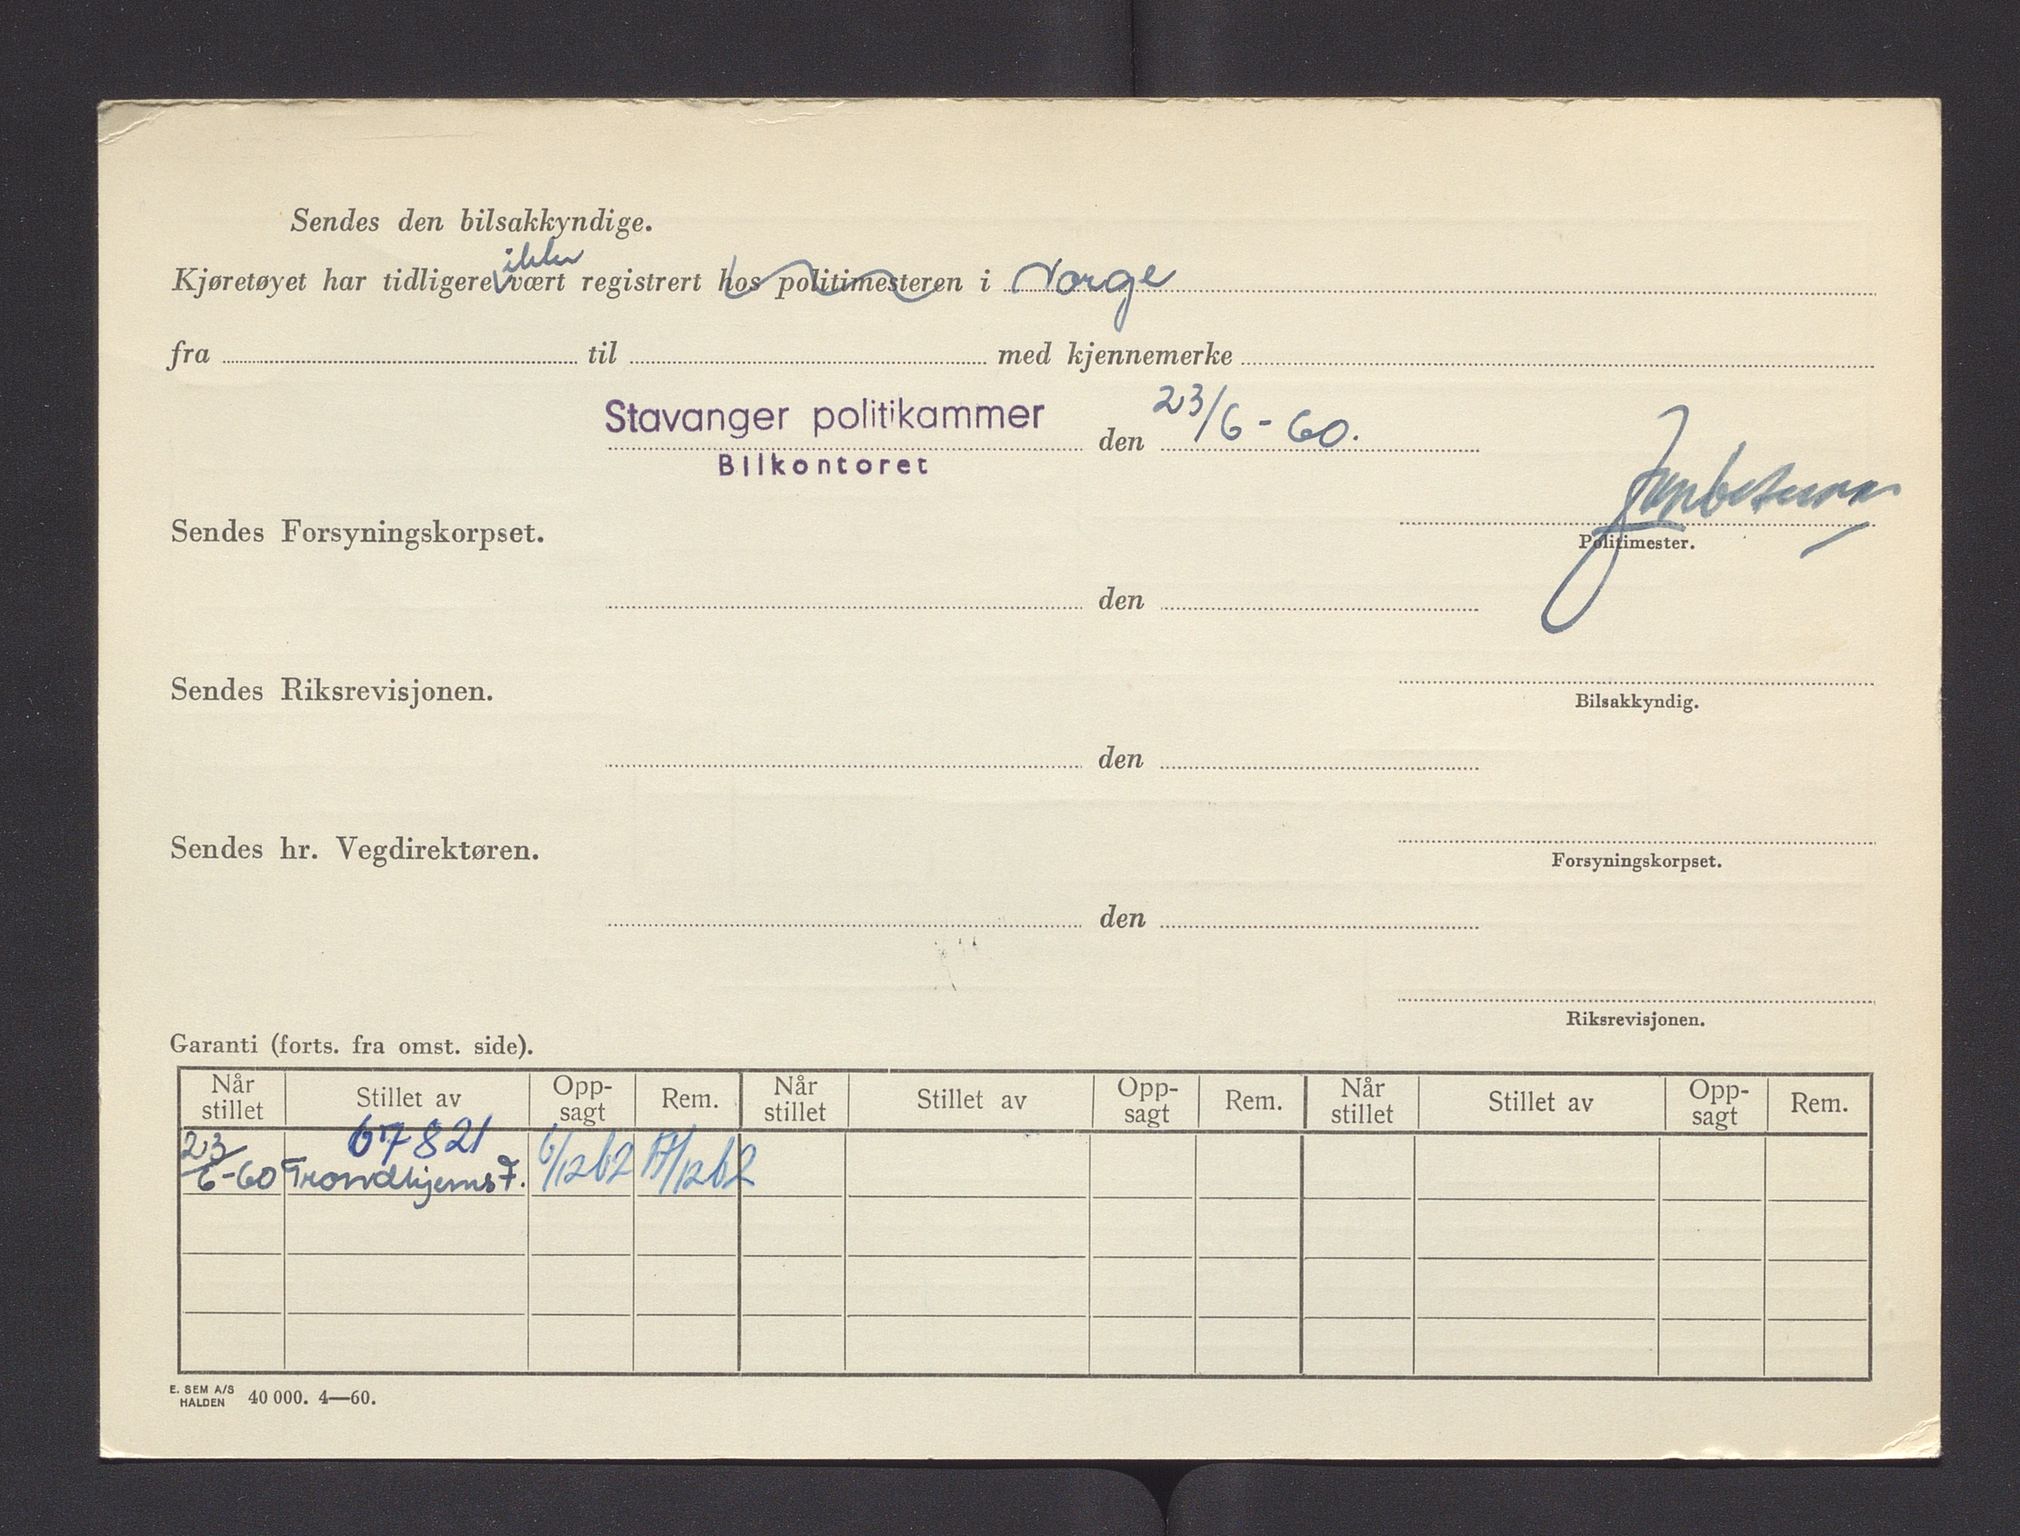 Sendes den bilsakkyndige.
ikke
Kjøretøyet har tidligere vært registrert hos politimesteren i Norge
fra til med kjennemerke
Stavanger politikammer den 23/6-60.
Bilkontoret
Sendes Forsyningskorpset.
Politimester.
den
Sendes Riksrevisjonen.
Bilsakkyndig.
den
Sendes hr. Vegdirektøren.
Forsyningskorpset.
den
Riksrevisjonen.
Garanti (forts. fra omst. side).
Når stillet Stillet av Opp-sagt Rem. Når stillet Stillet av Opp-sagt Rem. Når stillet Stillet av Opp-sagt Rem.
67821
23/6-60 Trondhjems F. 6/12 62 17/12 62
E. SEM A/S
HALDEN 40 000. 4—60.